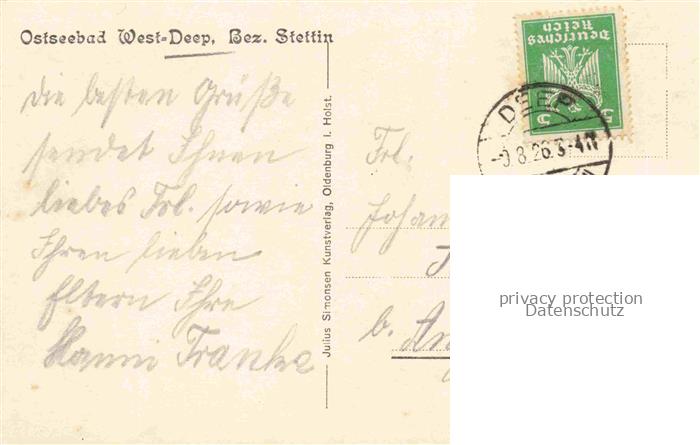 Ostseebad West-Deep, Bez. Stettin
Die besten Grüße
sendet Ihnen
liebes Frl. sowie
Ihren lieben
Eltern Ihre
Hanni Franke
Julius Simonsen Kunstverlag, Oldenburg i. Holst.
Deutsches
Reich
5 5
DEEP
8.26.3-4N
Frl.
b.
privacy protection
Datenschutz